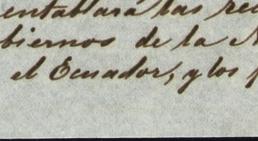 entablará las rec
biernos de la N
el Ecuador, y los p